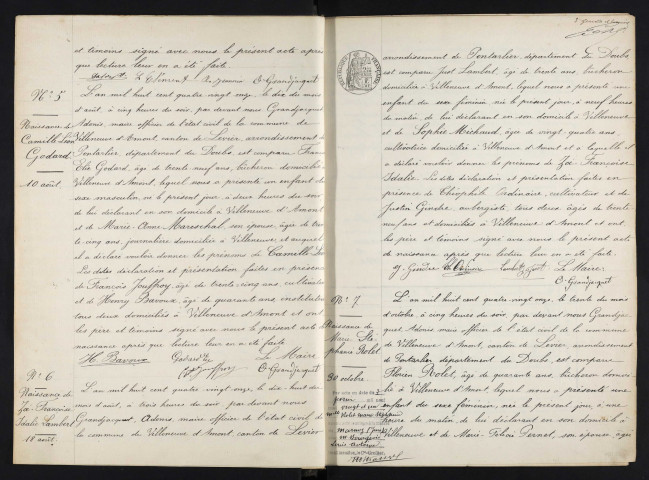 et témoins signé avec nous le présent acte après
que lecture leur en a été faite.
Clément O. Grandjacquet
N° 5
Naissance de
Camille Léon
Godard
10 août
L'an mil huit cent quatre-vingt onze, le dix du mois
d'août à cinq heures du soir, par devant nous Grandjacquet
Adonis, maire officier de l'état civil de la commune de
Villeneuve d'Amont, canton de Levier, arrondissement de
Pontarlier, département du Doubs est comparu
Elie Godard, âgé de trente neuf ans, bûcheron domicilié à
Villeneuve d'Amont, lequel nous a présenté un enfant du
sexe masculin, né le présent jour, à deux heures du soir
de lui déclarant en son domicile à Villeneuve d'Amont
et de Marie-Anne Mareschal, son épouse, âgée de
trente cinq ans, journalière domiciliée à Villeneuve et auquel
il a déclaré vouloir donner les prénoms de Camille Léon
Les dites déclaration et présentation faites en présence
de François Jouffroy, âgé de trente-cinq ans, cultivateur
et de Henry Bavoux, âgé de quarante ans, instituteur
tous deux domiciliés à Villeneuve d'Amont et ont
les père et témoins signé avec nous le présent acte de
naissance après que lecture leur en a été faite
H. Bavoux Godard Elie Le Maire
Jouffroy O. Grandjacquet
N° 6
Naissance de
Zoé Françoise
Idalie Lambert
18 août
L'an mil huit cent quatre-vingt onze, le dix-huit du
mois d'août, à trois heures du soir, par devant nous
Grandjacquet, Adonis, maire officier de l'état civil de
la commune de Villeneuve d'Amont, canton de Levier
arrondissement de Pontarlier, département du Doubs
est comparu Just Lambert, âgé de trente ans, bûcheron
domicilié à Villeneuve d'Amont, lequel nous a présenté un
enfant du sexe féminin, né le présent jour, à neuf heures
du matin, de lui déclarant en son domicile à Villeneuve
et de Sophie Michaud, âgée de vingt quatre ans,
cultivatrice domiciliée à Villeneuve d'Amont et à laquelle il
a déclaré vouloir donner les prénoms de Zoé Françoise
Idalie. Les dites déclaration et présentation faites en
présence de Théophile Ordinaire, cultivateur et de
Justin Gindre, aubergiste, tous deux âgés de trente
neuf ans et domiciliés à Villeneuve d'Amont et ont
les père et témoins signé avec nous le présent acte
de naissance après que lecture leur en a été faite.
J. Gindre Th Ordinaire Lambert Just Le Maire
O. Grandjacquet
N° 7
Naissance de
Marie Sté-
phana Rolet
30 octobre
L'an mil huit cent quatre-vingt onze, le trente du mois
d'octobre, à cinq heures du soir, par devant nous Grandjac-
quet Adonis maire officier de l'état civil de la commune
de Villeneuve d'Amont, canton de Levier, arrondissement
de Pontarlier département du Doubs, est comparu
Florien Rolet, âgé de quarante ans, bûcheron domici-
lié à Villeneuve d'Amont, lequel nous a présenté une
enfant du sexe féminin, née le présent jour, à une
heure du matin de lui déclarant en son domicile à
Villeneuve et de Marie-Félicie Pernet, son épouse, âgée